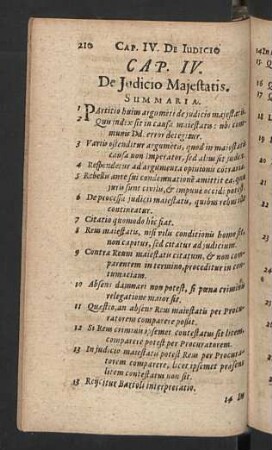 210 CAP. IV. DE IUDICIO
CAP. IV.
De Judicio Majestatis.
SUMMARIA.
1 PArtitio huius argumenti de judicio majestatis.
2 Quis judex sit in causa majestatis: ubi com-
munis Dd. error detegitur.
3 Variis ostenditur argumentis, quod in majestatis
causa non Imperator, sed alius sit judex.
4 Respondetur ad argumenta opinionis contrariae.
5 Rebellis ante sui condemnationem amittit ea quae
juris sunt civilis, & impune occidi potest.
6 De processu judicii majestatis, quibus rebus is
contineatur.
7 Citatio quomodo hic fiat.
8 Reus majestatis, nisi vilis conditionis homo sit,
non capitur, sed citatur ad judicium.
9 Contra Reum majestatis citatum, & non com-
parentem in termino, proceditur in con-
tumaciam.
10 Absens damnari non potest, si poena criminis
relegatione maior sit.
11 Quaestio, an absens Reus majestatis per Procu-
ratorem comparere possit.
12 Si Reus criminis ipsemet contestatus sit litem,
comparere potest per Procuratorem.
13 In judicio majestatis potest Reus per Procura-
torem comparere, licet ipsemet praesens
litem contestatus non sit.
13 Rejicitur Bartoli interpretatio.
14